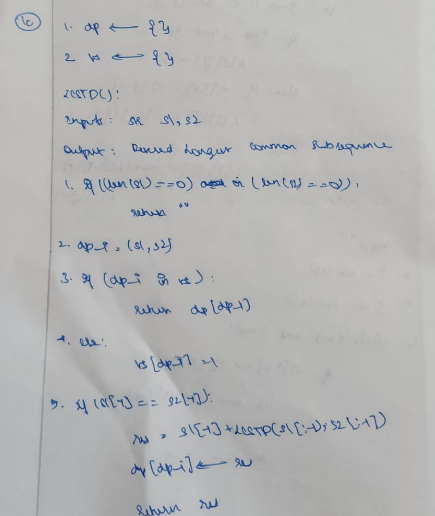 1c
1. dp ← {}
2. vs ← {}
LCSTD():
Inputs: str s1, s2
Output: Longest common subsequence
1. if ((len(s1) == 0) or (len(s2) == 0)),
return ""
2. dp_i = (s1, s2)
3. if (dp_i in vs):
return dp[dp_i]
4. else:
vs[dp_i] = 1
5. if (s1[-1] == s2[-1]):
res = s1[-1] + LCSTD(s1[:-1], s2[:-1])
dp[dp_i] ← res
return res